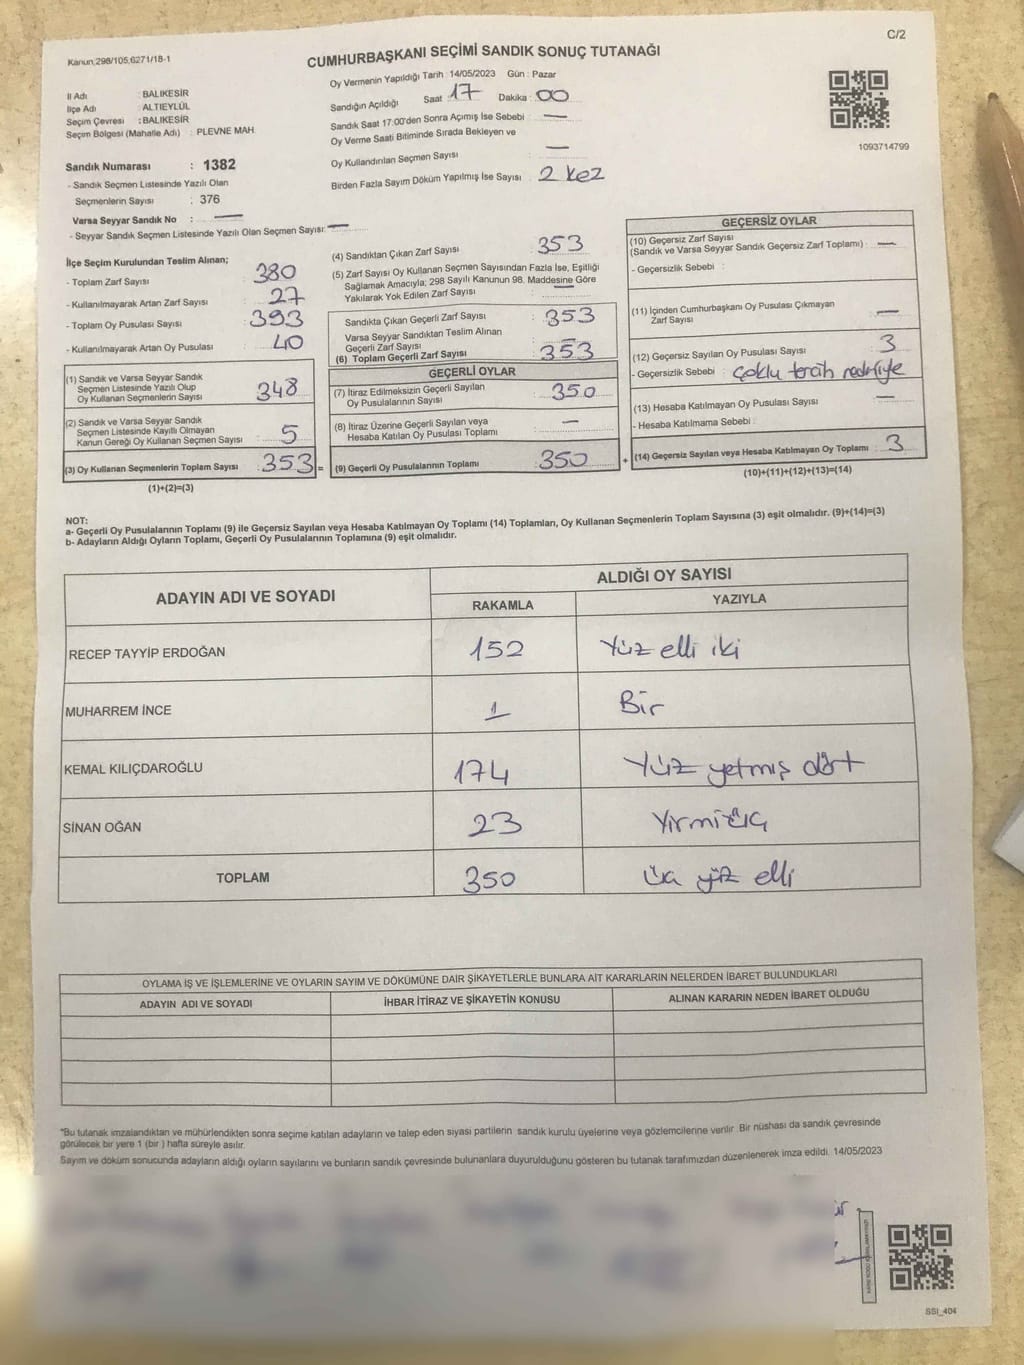 C/2
Kanun,298/105,6271/18-1
CUMHURBAŞKANI SEÇİMİ SANDIK SONUÇ TUTANAĞI
Oy Vermenin Yapıldığı Tarih : 14/05/2023 Gün : Pazar
İl Adı : BALIKESİR
İlçe Adı : ALTIEYLÜL
Seçim Çevresi : BALIKESİR
Seçim Bölgesi (Mahalle Adı) : PLEVNE MAH.
Sandığın Açıldığı Saat : 17 Dakika : 00
Sandık Saat 17:00'den Sonra Açımış İse Sebebi : —
Oy Verme Saati Bitiminde Sırada Bekleyen ve
Oy Kullandırılan Seçmen Sayısı : —
Birden Fazla Sayım Döküm Yapılmış İse Sayısı : 2 kez
1093714799
Sandık Numarası : 1382
- Sandık Seçmen Listesinde Yazılı Olan
Seçmenlerin Sayısı : 376
Varsa Seyyar Sandık No : —
- Seyyar Sandık Seçmen Listesinde Yazılı Olan Seçmen Sayısı: —
İlçe Seçim Kurulundan Teslim Alınan;
- Toplam Zarf Sayısı : 380
- Kullanılmayarak Artan Zarf Sayısı : 27
- Toplam Oy Pusulası Sayısı : 393
- Kullanılmayarak Artan Oy Pusulası : 40
(1) Sandık ve Varsa Seyyar Sandık
Seçmen Listesinde Yazılı Olup
Oy Kullanan Seçmenlerin Sayısı : 348
(2) Sandık ve Varsa Seyyar Sandık
Seçmen Listesinde Kayıtlı Olmayan
Kanun Gereği Oy Kullanan Seçmen Sayısı : 5
(3) Oy Kullanan Seçmenlerin Toplam Sayısı : 353 =
(1)+(2)=(3)
(4) Sandıktan Çıkan Zarf Sayısı : 353
(5) Zarf Sayısı Oy Kullanan Seçmen Sayısından Fazla İse, Eşitliği
Sağlamak Amacıyla; 298 Sayılı Kanunun 98. Maddesine Göre
Yakılarak Yok Edilen Zarf Sayısı :
Sandıkta Çıkan Geçerli Zarf Sayısı : 353
Varsa Seyyar Sandıktan Teslim Alınan
Geçerli Zarf Sayısı :
(6) Toplam Geçerli Zarf Sayısı : 353
GEÇERLİ OYLAR
(7) İtiraz Edilmeksizin Geçerli Sayılan
Oy Pusulalarının Sayısı : 350
(8) İtiraz Üzerine Geçerli Sayılan veya
Hesaba Katılan Oy Pusulası Toplamı : —
(9) Geçerli Oy Pusulalarının Toplamı : 350 +
GEÇERSİZ OYLAR
(10) Geçersiz Zarf Sayısı
(Sandık ve Varsa Seyyar Sandık Geçersiz Zarf Toplamı) : —
- Geçersizlik Sebebi :
(11) İçinden Cumhurbaşkanı Oy Pusulası Çıkmayan
Zarf Sayısı : —
(12) Geçersiz Sayılan Oy Pusulası Sayısı : 3
- Geçersizlik Sebebi : çoklu tercih nedeniyle
(13) Hesaba Katılmayan Oy Pusulası Sayısı : —
- Hesaba Katılmama Sebebi :
(14) Geçersiz Sayılan veya Hesaba Katılmayan Oy Toplamı : 3
(10)+(11)+(12)+(13)=(14)
NOT:
a- Geçerli Oy Pusulalarının Toplamı (9) ile Geçersiz Sayılan veya Hesaba Katılmayan Oy Toplamı (14) Toplamları, Oy Kullanan Seçmenlerin Toplam Sayısına (3) eşit olmalıdır. (9)+(14)=(3)
b- Adayların Aldığı Oyların Toplamı, Geçerli Oy Pusulalarının Toplamına (9) eşit olmalıdır.
ADAYIN ADI VE SOYADI ALDIĞI OY SAYISI
RAKAMLA YAZIYLA
RECEP TAYYİP ERDOĞAN 152 Yüz elli iki
MUHARREM İNCE 1 Bir
KEMAL KILIÇDAROĞLU 174 Yüz yetmiş dört
SİNAN OĞAN 23 Yirmi üç
TOPLAM 350 üç yüz elli
OYLAMA İŞ VE İŞLEMLERİNE VE OYLARIN SAYIM VE DÖKÜMÜNE DAİR ŞİKAYETLERLE BUNLARA AİT KARARLARIN NELERDEN İBARET BULUNDUKLARI
ADAYIN ADI VE SOYADI İHBAR İTİRAZ VE ŞİKAYETİN KONUSU ALINAN KARARIN NEDEN İBARET OLDUĞU
*Bu tutanak imzalandıktan ve mühürlendikten sonra seçime katılan adayların ve talep eden siyasi partilerin sandık kurulu üyelerine veya gözlemcilerine verilir. Bir nüshası da sandık çevresinde
görülecek bir yere 1 (bir) hafta süreyle asılır.
Sayım ve döküm sonucunda adayların aldığı oyların sayılarını ve bunların sandık çevresinde bulunanlara duyurulduğunu gösteren bu tutanak tarafımızdan düzenlenerek imza edildi. 14/05/2023
SSI_404